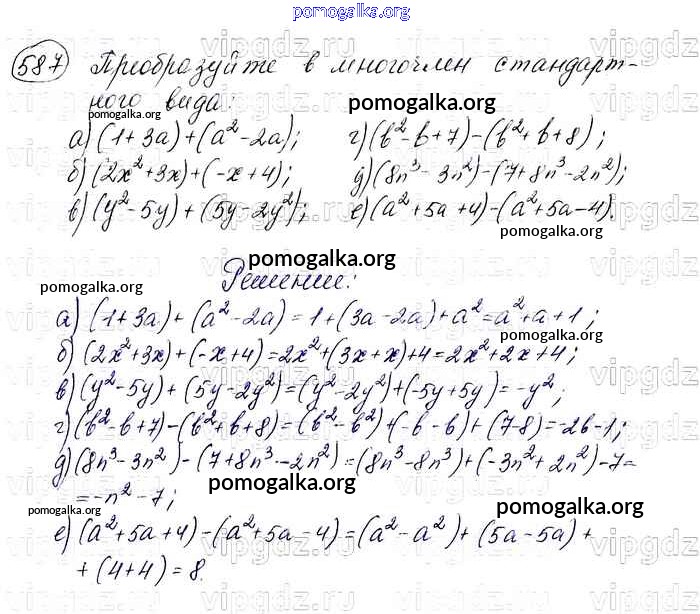 pomogalka.org
587 Преобразуйте в многочлен стандарт-
ного вида:
pomogalka.org pomogalka.org
а) (1+3a)+(a²-2a); г) (b²-b+7)-(b²+b+8);
б) (2x²+3x)+(-x+4); д) (8n³-3n²)-(7+8n³-2n²);
в) (y²-5y)+(5y-2y²); е) (a²+5a+4)-(a²+5a-4).
pomogalka.org
pomogalka.org
Решение:
pomogalka.org
а) (1+3a)+(a²-2a)=1+(3a-2a)+a²=a²+a+1;
pomogalka.org
б) (2x²+3x)+(-x+4)=2x²+(3x+x)+4=2x²+2x+4;
в) (y²-5y)+(5y-2y²)=(y²-2y²)+(-5y+5y)=-y²;
г) (b²-b+7)-(b²+b+8)=(b²-b²)+(-b-b)+(7-8)=-2b-1;
д) (8n³-3n²)-(7+8n³-2n²)=(8n³-8n³)+(-3n²+2n²)-7=
=-n²-7;
pomogalka.org
pomogalka.org pomogalka.org
е) (a²+5a+4)-(a²+5a-4)=(a²-a²)+(5a-5a)+
+(4+4)=8.
pomogalka.org
vipgdz